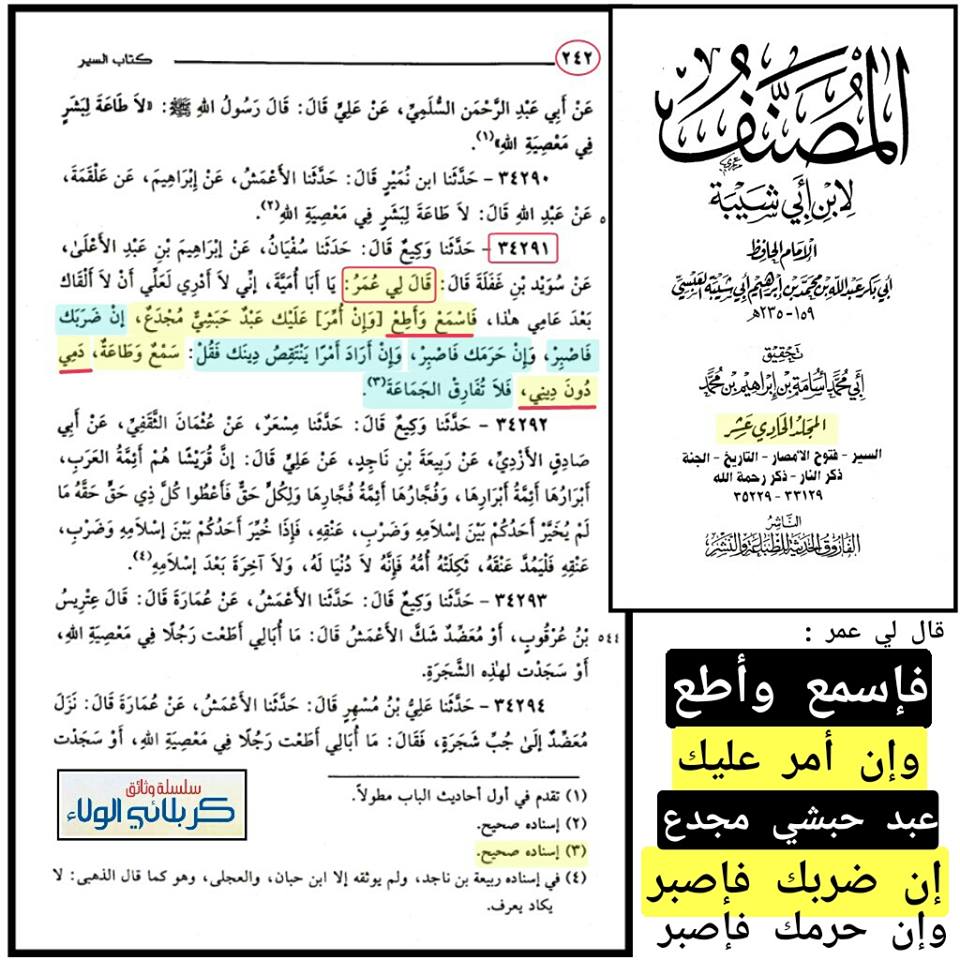 ٢٤٢
كتاب السير
عَنْ أَبِي عَبْدِ الرَّحْمَنِ السُّلَمِيِّ، عَنْ عَلِيٍّ قَالَ: قَالَ رَسُولُ اللهِ ﷺ: «لاَ طَاعَةَ لِبَشَرٍ
فِي مَعْصِيَةِ اللهِ»(١).
٣٤٢٩٠ - حَدَّثَنَا ابن نُمَيْرٍ قَالَ: حَدَّثَنَا الأَعْمَشُ، عَنْ إِبْرَاهِيمَ، عَن عَلْقَمَةَ،
عَنْ عَبْدِ اللهِ قَالَ: لاَ طَاعَةَ لِبَشَرٍ فِي مَعْصِيَةِ اللهِ(٢).
٥
٣٤٢٩١ - حَدَّثَنَا وَكِيعٌ قَالَ: حَدَّثَنَا سُفْيَانُ، عَنْ إِبْرَاهِيمَ بْنِ عَبْدِ الأَعْلَى،
عَنْ سُوَيْدِ بْنِ غَفَلَةَ قَالَ: قَالَ لِي عُمَرُ: يَا أَبَا أُمَيَّةَ، إنِّي لاَ أَدْرِي لَعَلِّي أَنْ لاَ أَلْقَاك
بَعْدَ عَامِي هٰذا، فَاسْمَعْ وَأَطِعْ [وَإِنْ أُمِّرَ] عَلَيْك عَبْدٌ حَبَشِيٌّ مُجْدَعٌ، إِنْ ضَرَبَك
فَاصْبِرْ، وَإِنْ حَرَمَك فَاصْبِرْ، وَإِنْ أَرَادَ أَمْرًا يَنْتَقِصُ دِينَك فَقُلْ: سَمْعٌ وَطَاعَةٌ، دَمِي
دُونَ دِينِي، فَلاَ تُفَارِقِ الجَمَاعَةَ(٣).
٣٤٢٩٢ - حَدَّثَنَا وَكِيعٌ قَالَ: حَدَّثَنَا مِسْعَرٌ، عَنْ عُثْمَانَ الثَّقَفِيِّ، عَنْ أَبِي
صَادِقٍ الأَزْدِيِّ، عَنْ رَبِيعَةَ بْنِ نَاجِدٍ، عَن عَلِيٍّ قَالَ: إِنَّ قُرَيْشًا هُمْ أَئِمَّةُ العَرَبِ،
أَبْرَارُهَا أَئِمَّةُ أَبْرَارِهَا، وَفُجَّارُهَا أَئِمَّةُ فُجَّارِهَا وَلِكُلٍّ حَقٌّ فَأَعْطُوا كُلَّ ذِي حَقٍّ حَقَّهُ مَا
لَمْ يُخَيَّرْ أَحَدُكُمْ بَيْنَ إسْلاَمِهِ وَضَرْبِ، عَنْقِهِ، فَإِذَا خُيِّرَ أَحَدُكُمْ بَيْنَ إسْلاَمِهِ وَضَرْبِ،
عَنْقِهِ فَلْيَمُدَّ عَنْقَهُ، ثَكِلَتْهُ أُمُّهُ فَإِنَّهُ لاَ دُنْيَا لَهُ، وَلاَ آخِرَةَ بَعْدَ إسْلاَمِهِ(٤).
٣٤٢٩٣ - حَدَّثَنَا وَكِيعٌ قَالَ: حَدَّثَنَا الأَعْمَشُ، عَنْ عُمَارَةَ قَالَ: قَالَ عِتْرِيسُ
بْنُ عُرْقُوبٍ، أَوْ مُعَضِّدٌ شَكَّ الأَعْمَشُ قَالَ: مَا أُبَالِي أَطَعْت رَجُلًا فِي مَعْصِيَةِ اللهِ،
٥٤٤
أَوْ سَجَدْت لِهٰذِهِ الشَّجَرَةِ.
٣٤٢٩٤ - حَدَّثَنَا عَلِيُّ بْنُ مُسْهِرٍ قَالَ: حَدَّثَنَا الأَعْمَشُ، عَنْ عُمَارَةَ قَالَ: نَزَلَ
مُعَضِّدٌ إِلَىٰ جُبِّ شَجَرَةٍ، فَقَالَ: مَا أُبَالِي أَطَعْت رَجُلًا فِي مَعْصِيَةِ اللهِ، أَوْ سَجَدْت
(١) تقدم في أول أحاديث الباب مطولاً.
(٢) إسناده صحيح.
(٣) إسناده صحيح.
(٤) في إسناده ربيعة بن ناجد، ولم يوثقه إلا ابن حبان، والعجلى، وهو كما قال الذهبى: لا
يكاد يعرف.
سلسلة وثائق
كربلائي الولاء
المُصَنَّف
لِابْنِ أَبِي شَيْبَة
الإمَام الحَافِظ
أبي بكر عبد الله بن محمد بن إبراهيم أبي شيبة العبسي
١٥٩ - ٢٣٥هـ
تحقيق
أبي محمد أسامة بن إبراهيم بن محمد
المجلد الحادي عشر
السير - فتوح الأمصار - التاريخ - الجنة
ذكر النار - ذكر رحمة الله
٣٣١٢٩ - ٣٥٢٢٩
الناشر
الفاروق الحديثة للطباعة والنشر
قال لي عمر :
فإسمع وأطع
وإن أمر عليك
عبد حبشي مجدع
إن ضربك فإصبر
وإن حرمك فإصبر